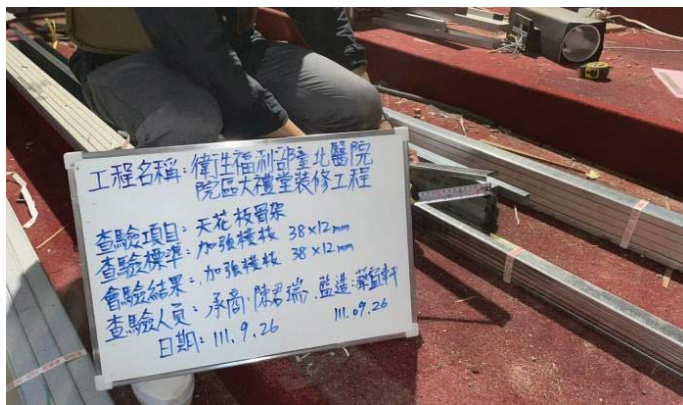 工程名稱:衛生福利部臺北醫院
院區大禮堂裝修工程
查驗項目:天花板骨架
查驗標準:加強橫枝 38×12mm
會驗結果:加強橫枝 38×12mm
查驗人員:承商:陳君瑞,監造:
日期:111.9.26 111.09.26